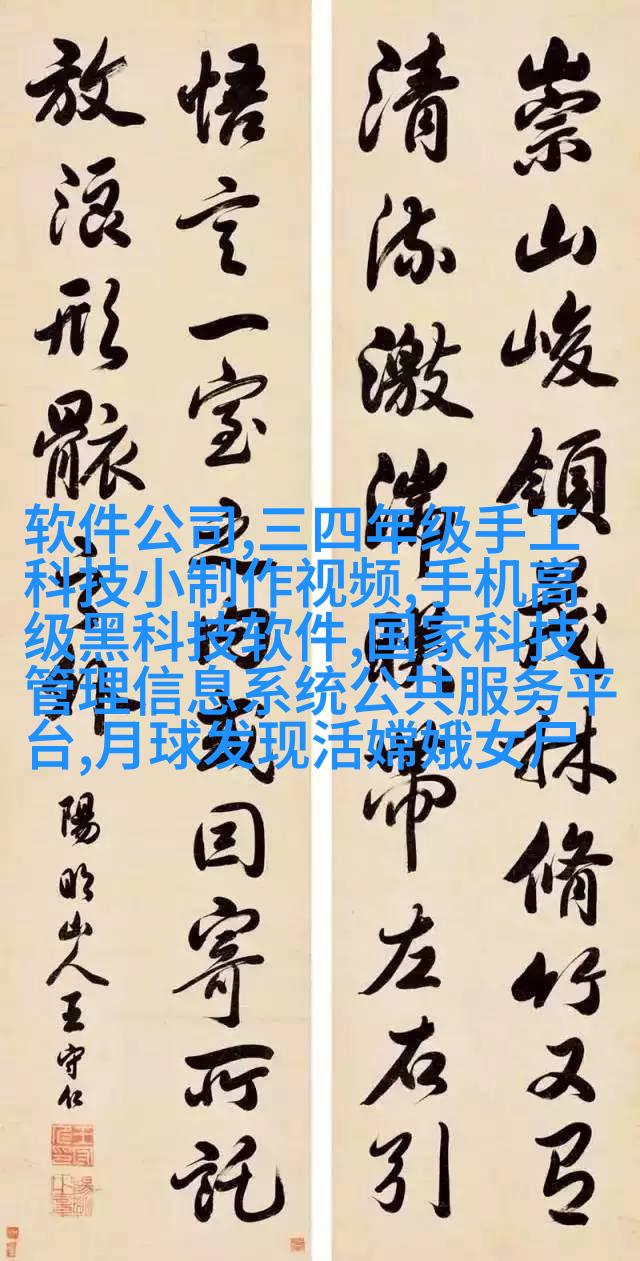 崇山峻領茂林脩竹又有
清流激湍暎帶左右引
悟言一室之内或因寄所託
放浪形骸之外
陽明山人王守仁
软件公司,三四年级手工
科技小制作视频,手机高
级黑科技软件,国家科技
管理信息系统公共服务平
台,月球发现活嫦娥女尸